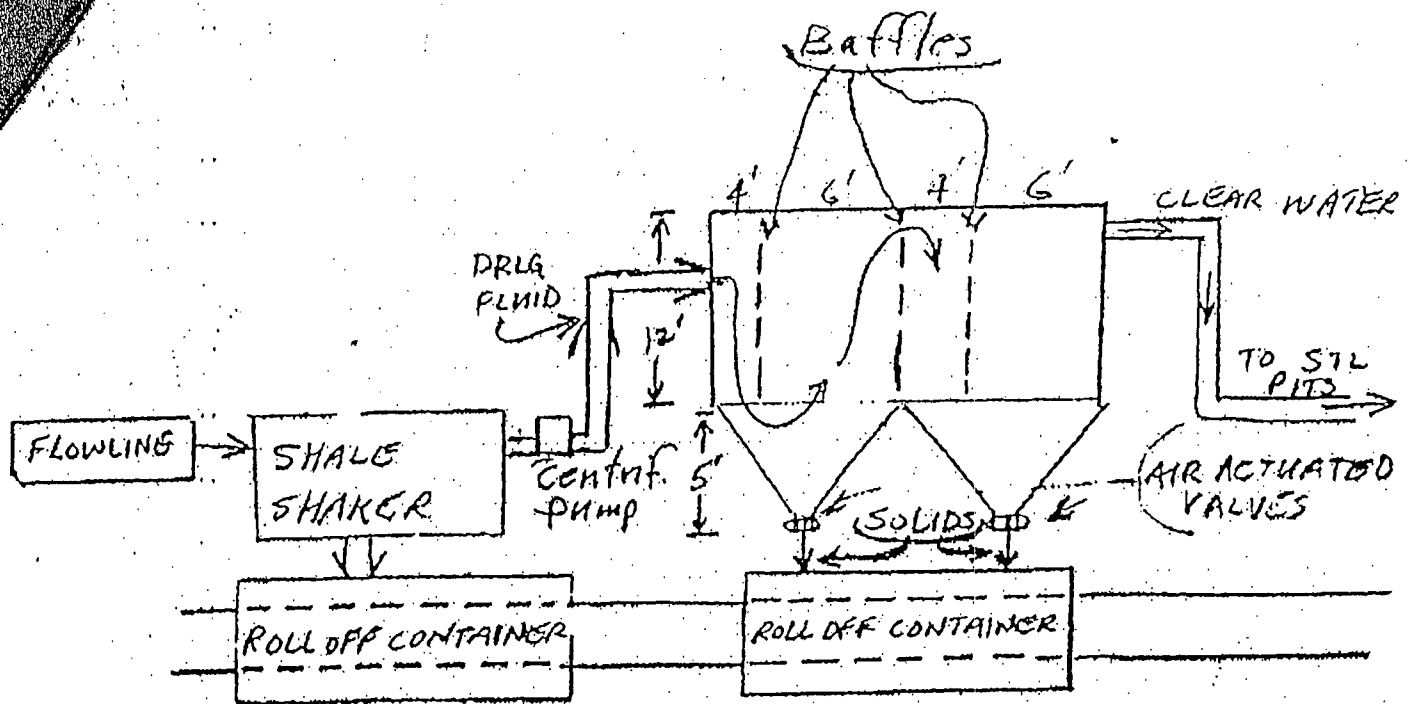 Baffles
4' 6' 4' 6'
CLEAR WATER
DRLG
FLUID
12'
TO STL
PITS
FLOWLING
SHALE
SHAKER
Centrif.
Pump
5'
SOLIDS
AIR ACTUATED
VALVES
ROLL OFF CONTAINER
ROLL OFF CONTAINER